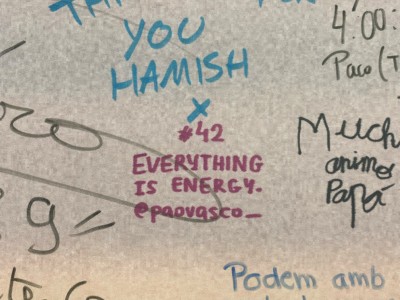 YOU
HAMISH
X
#42
EVERYTHING
IS ENERGY.
@paovasco_
4:00:
Paco (T
Much
animo
Papá
Podem amb